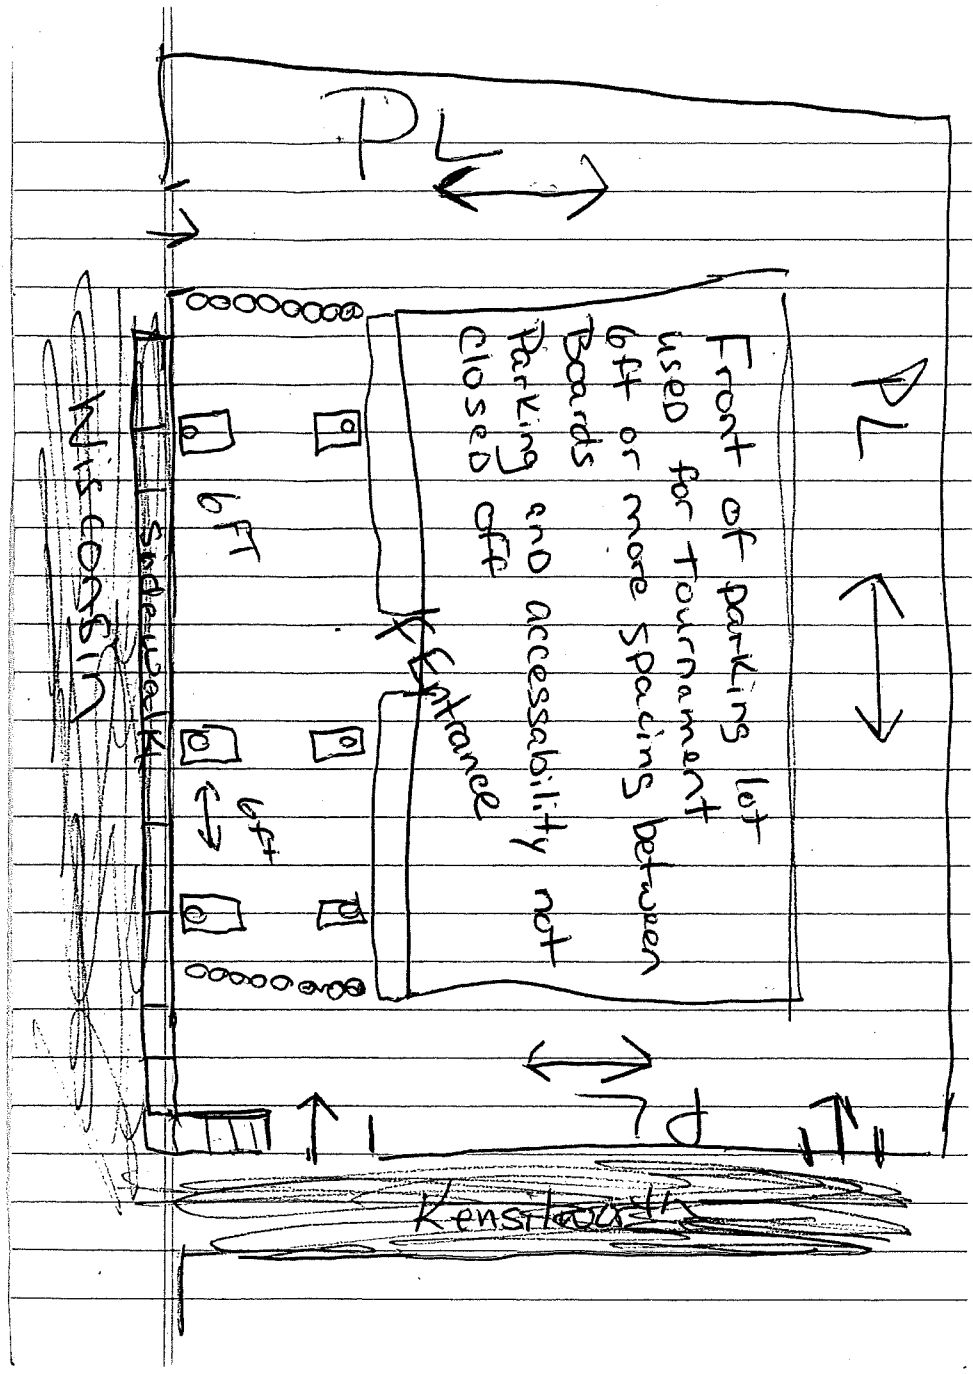 PL
PL
Front of parking lot
used for tournament
6ft or more spacing between
Boards
Parking and accessability not
closed off
Entrance
6FT
6ft
Sidewalk
Wisconsin
PL